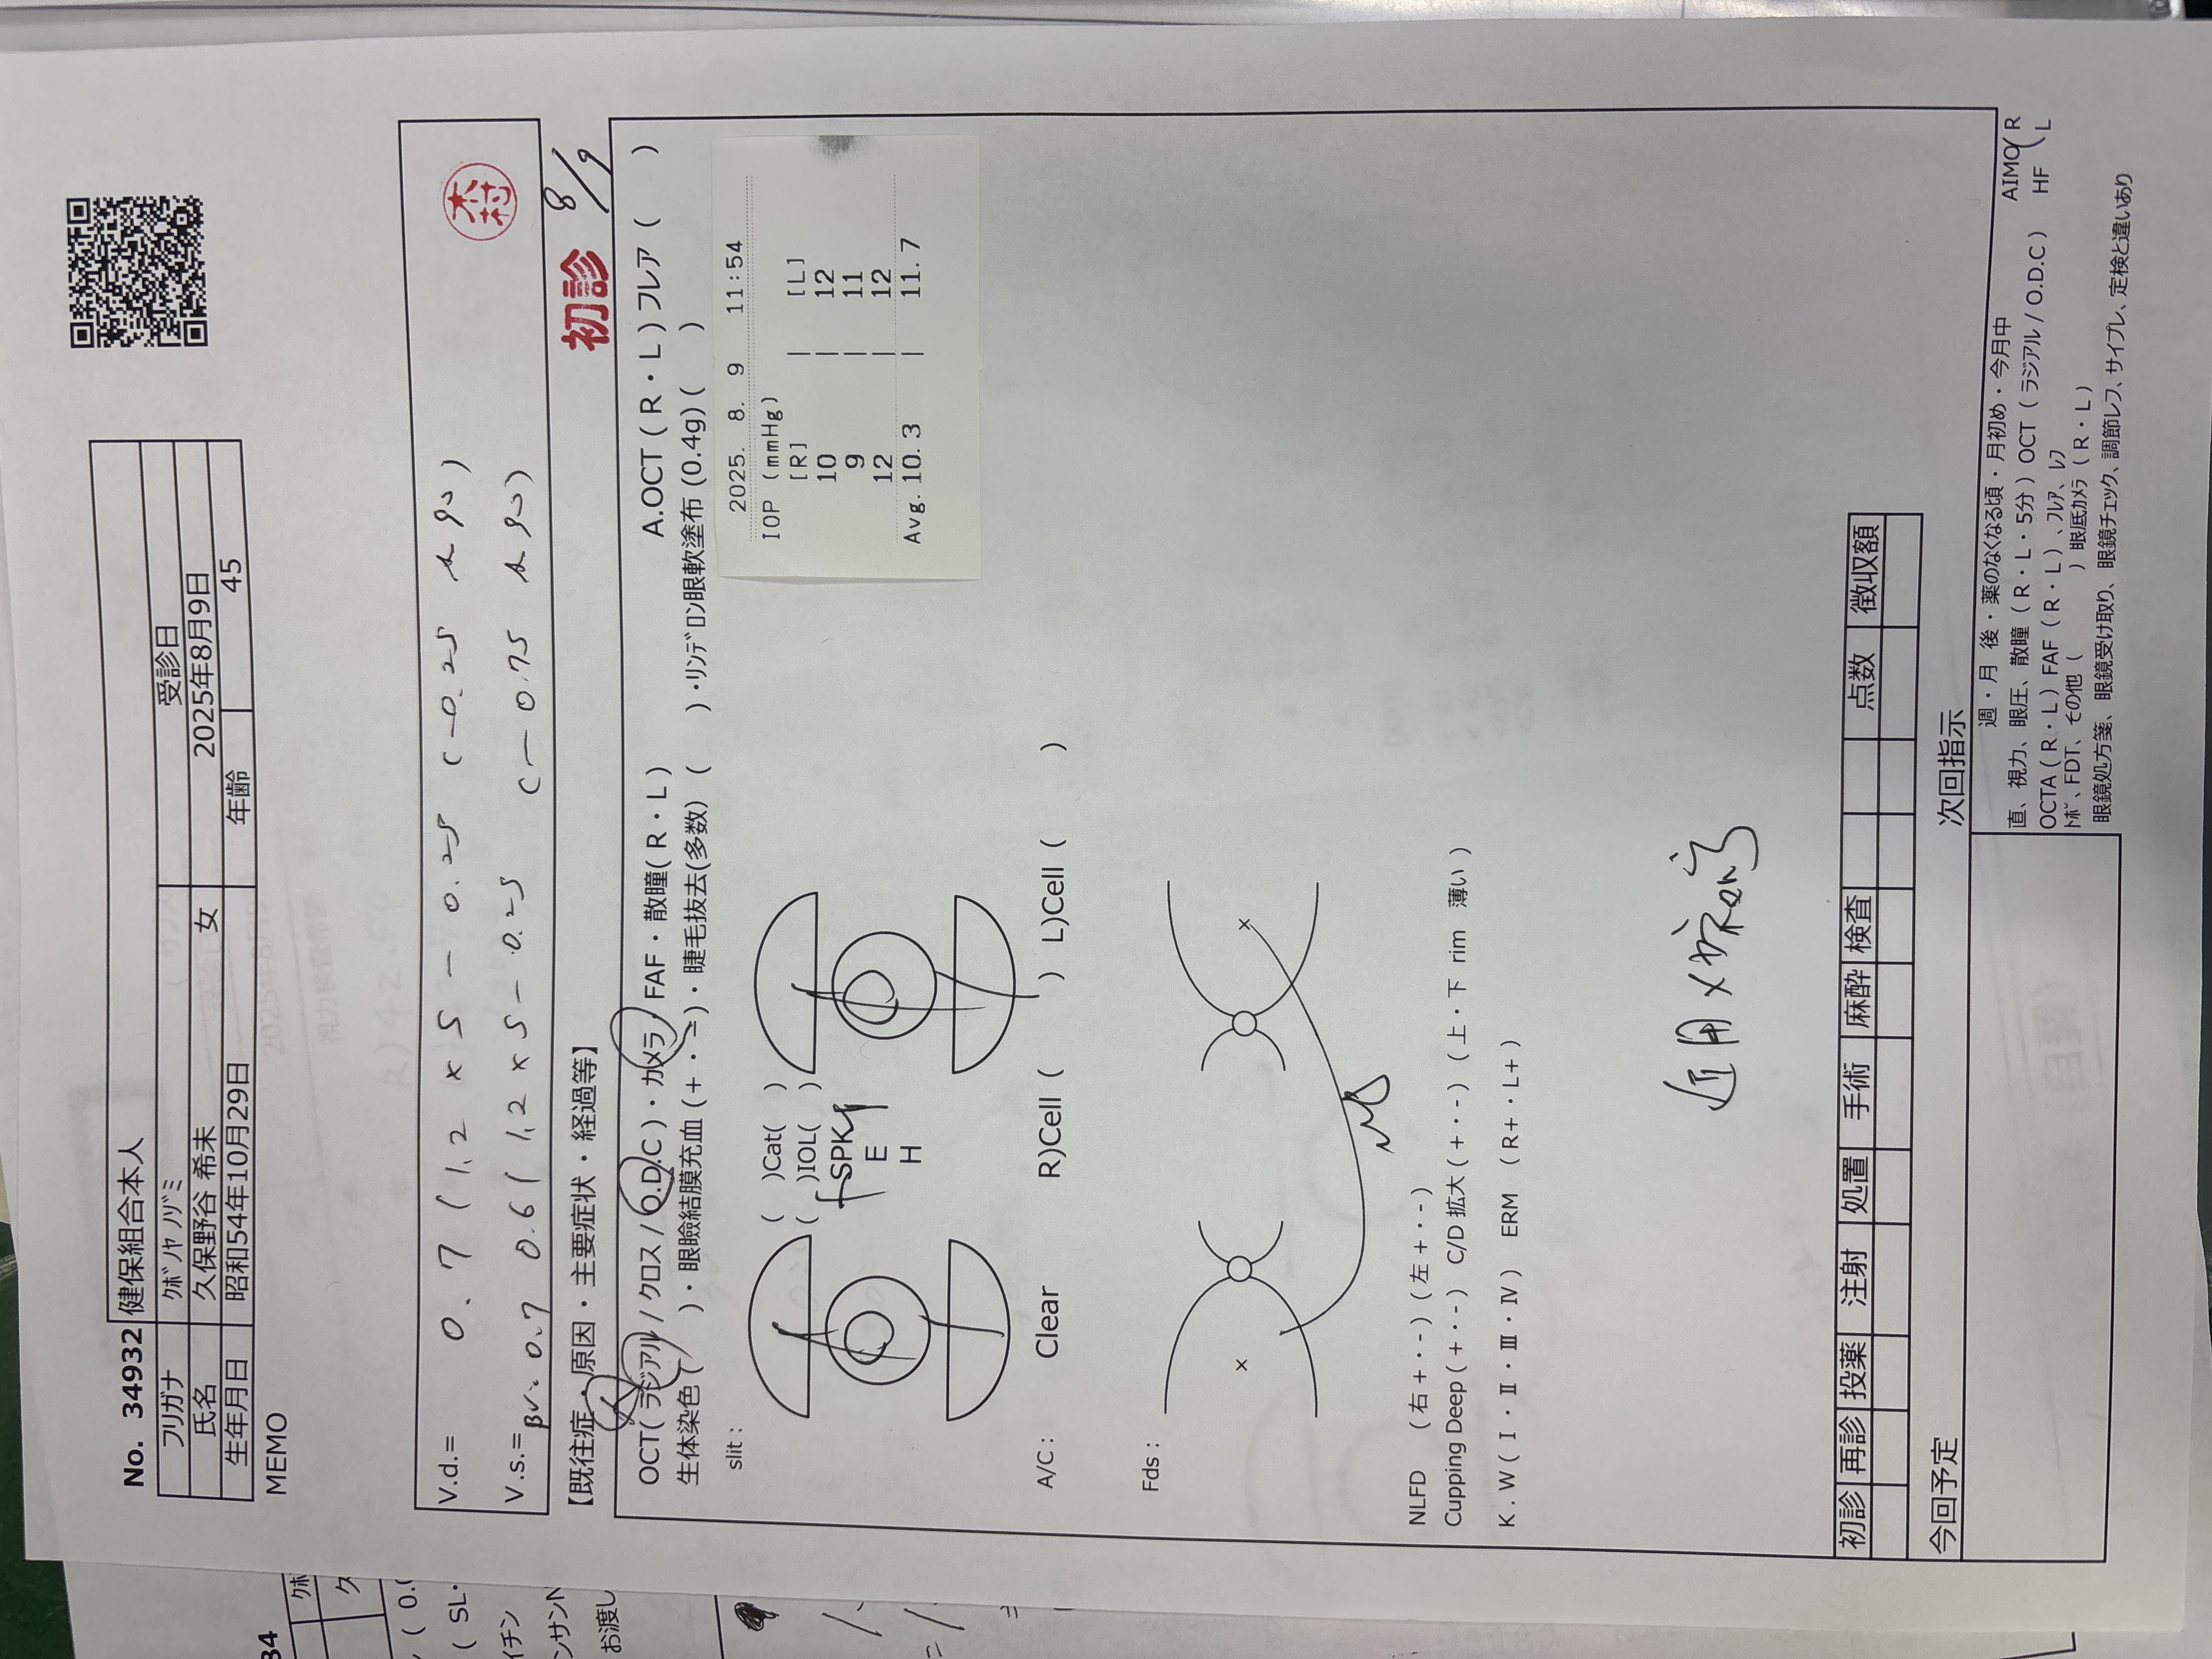 No. 34932 健保組合本人
フリガナ ｸﾎﾞﾉﾔ ﾉｿﾞﾐ 受診日
氏名 久保野谷 希未 女 2025年8月9日
生年月日 昭和54年10月29日 年齢 45
MEMO
V.d.= 0.7 (1.2 x S - 0.25 C-0.25 A 90)
木村
V.s.= 0.6 (1.2 x S - 0.25 C-0.75 A 90)
BV: 0.7
【既往症・原因・主要症状・経過等】 初診 8/9
OCT( ラジアル / クロス / O.D.C )・カメラ・FAF・散瞳( R・L ) A.OCT ( R・L ) フレア ( )
生体染色 ( )・眼瞼結膜充血 (+・-)・睫毛抜去(多数) ( )・ﾘﾝﾃﾞﾛﾝ眼軟塗布 (0.4g) ( )
slit :
( )Cat( )
( )IOL( )
SPK
E
H
2025. 8. 9 11:54
IOP (mmHg)
[R] | [L]
10 | 12
9 | 11
12 | 12
Avg. 10. 3 | 11. 7
A/C : Clear R)Cell ( ) L)Cell ( )
Fds :
× ×
NLFD (右 +・-) (左 +・-)
Cupping Deep (+・-) C/D 拡大 (+・-) (上・下 rim 薄い )
K.W( Ⅰ・Ⅱ・Ⅲ・Ⅳ ) ERM ( R+・L+ )
近用メガネ
初診 再診 投薬 注射 処置 手術 麻酔 検査 点数 徴収額
今回予定 次回指示
週・月 後・薬のなくなる頃・月初め・今月中
直、視力、眼圧、散瞳 ( R・L・5分 ) OCT ( ラジアル / O.D.C )
OCTA ( R・L ) FAF ( R・L ) 、ﾌﾚｱ、ﾚﾌ
ﾄﾎﾟ、FDT、その他 ( ) 眼底ｶﾒﾗ ( R・L )
眼鏡処方箋、眼鏡受け取り、眼鏡チェック、調節レフ、サイプレ、定検と違いあり
AIMO R
HF L
34
ｸﾎ
ク
( 0.0
( SL・
イチン
ンサンN
お渡し